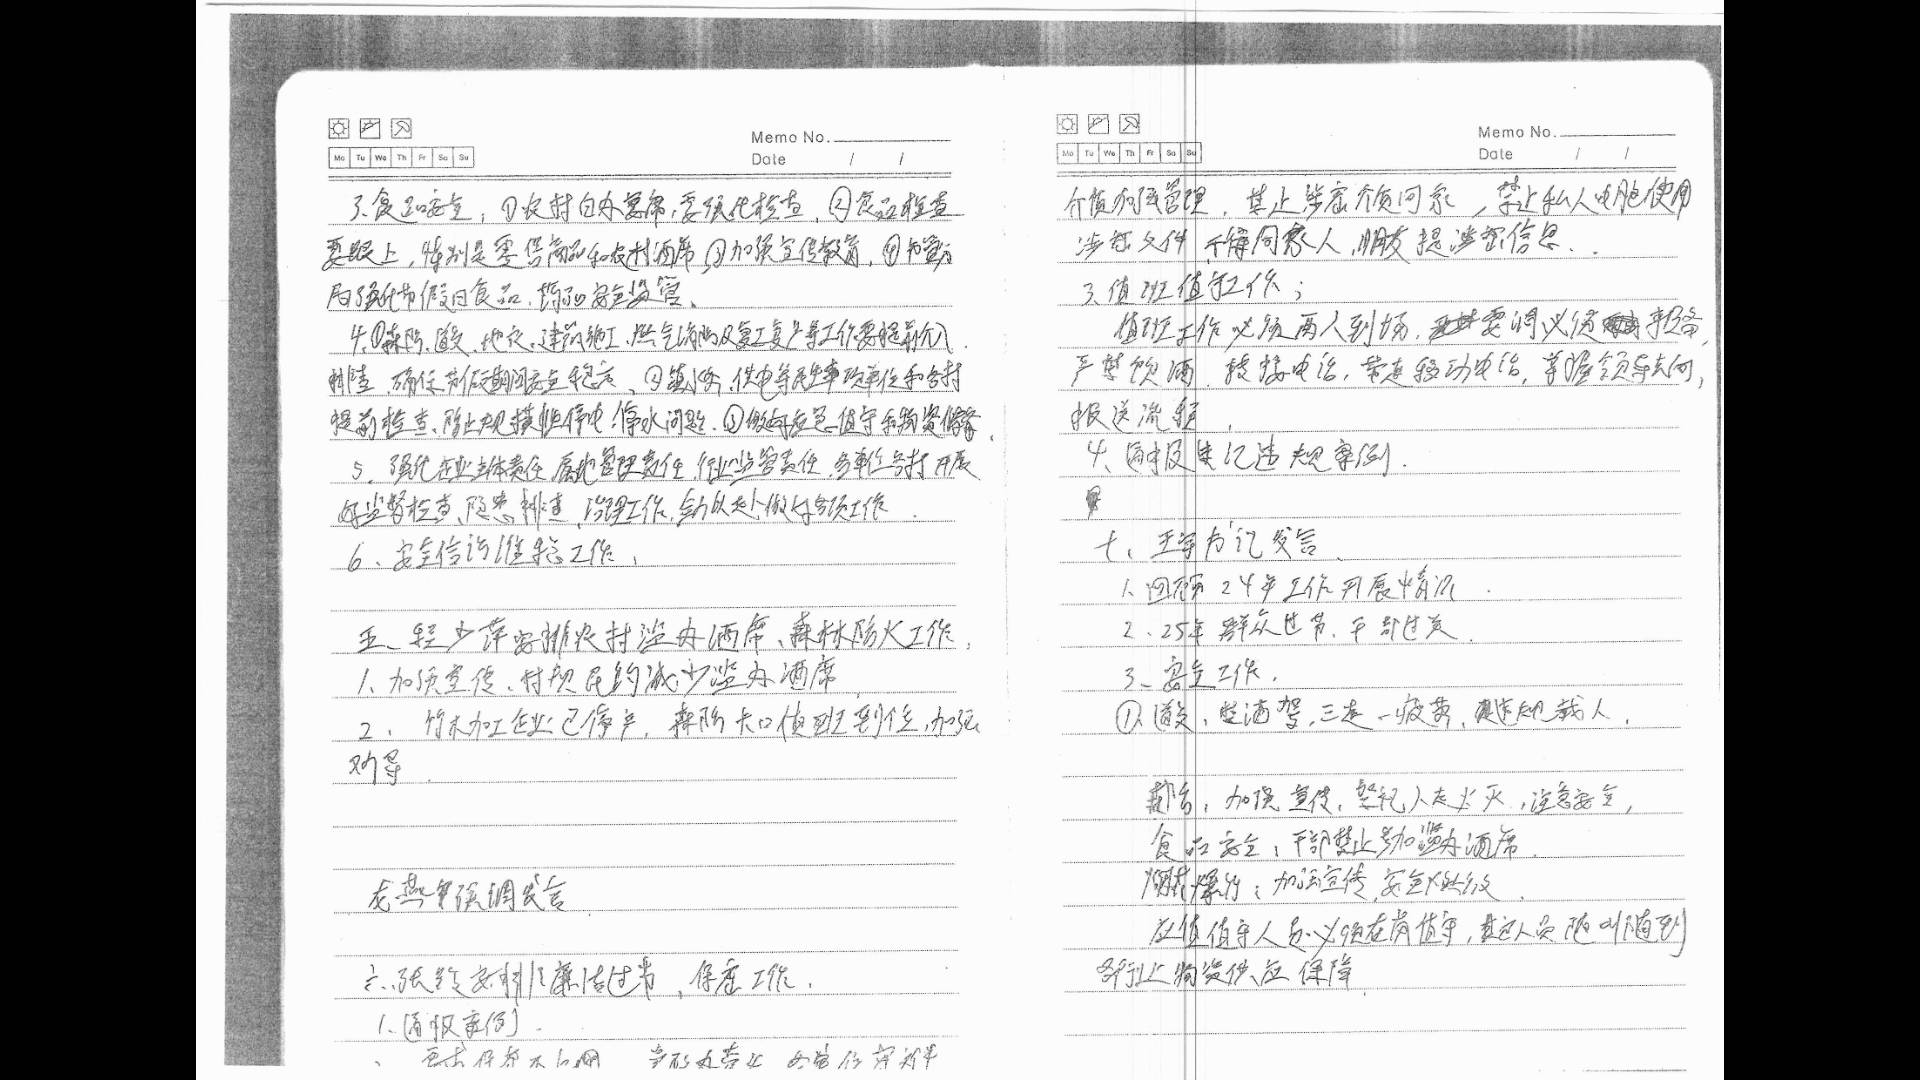 Memo No.
Mo Tu We Th Fr Sa Su
Date / /
3、食品安全，①农村自办宴席，要强化检查，②食品检查
要跟上，特别是零售商品和农村酒席，③加强宣传教育，④
局强化节假日食品、安全监管、
4、①森防、道交、地灾、建筑施工、燃气消防及复工复产等工作要提前介入
排查，确保节假日期间安全稳定，②镇水务、供电等民生事项单位和各村
提前检查、防止大规模性停电、停水问题，③做好应急值守和物资储备、
5、强化企业主体责任、属地管理责任、行业监管责任，各单位各村开展
好监督检查、隐患排查、治理工作，全力以赴做好各项工作．
6、安全信访维稳工作、
五、安排农村滥办酒席、森林防火工作，
1、加强宣传、村规民约减少滥办酒席
2、竹木加工企业已停产，森防卡口值班到位，加强
劝导．
强调发言
六、张 安排廉洁过节、保密工作．
1、通报案例．
Memo No.
Mo Tu We Th Fr Sa Su
Date / /
介质加强管理，禁止涉密介质回家，禁止私人电脑使用
涉密文件，不得同家人、朋友提涉密信息．
3、值班值守工作；
值班工作必须两人到场，要调必须报备，
严禁饮酒，转接电话，带走移动电话，掌握领导去向，
报送流程．
4、通报违纪违规案例．
七、王 书记发言、
1、回顾24年工作开展情况．
2、25年群众过节、干部过关．
3、安全工作．
①、道交，酒驾，三超一疲劳，违规载人．
加强宣传，禁 人走火灭，注意安全，
食品安全，干部禁止参加滥办酒席．
烟花爆竹：加强宣传，安全燃放．
应值值守人员必须在岗值守，其它人员随叫随到
各行业物资供应保障